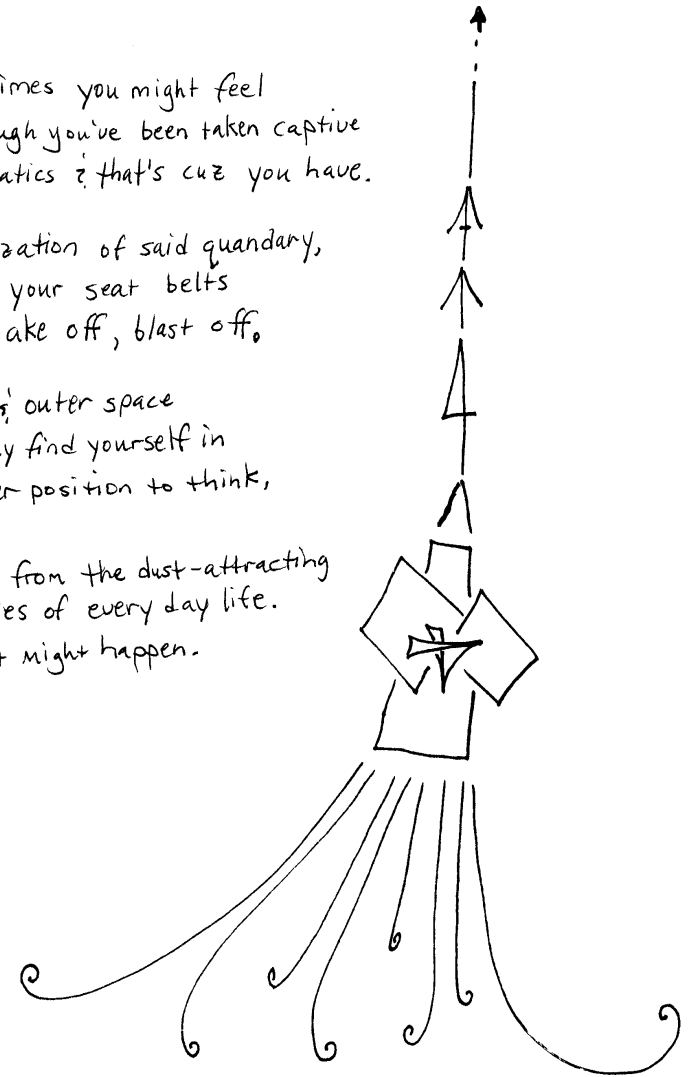 imes you might feel
ugh you've been taken captive
atics & that's cuz you have.
zation of said quandary,
your seat belts
ake off, blast off.
& outer space
y find yourself in
er position to think,
from the dust-attracting
es of every day life.
t might happen.